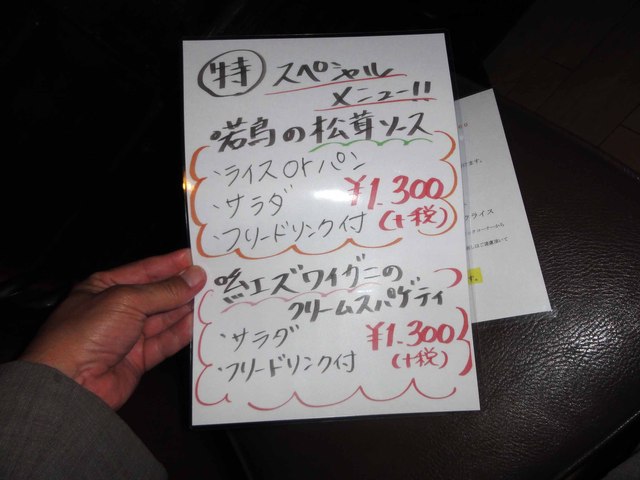 特 スペシャル
メニュー!!
若鳥の松茸ソース
・ライス or パン
・サラダ ¥1.300
・フリードリンク付 (+税)
ズワイガニの
クリームスパゲティ
・サラダ ¥1.300
・フリードリンク付 (+税)
クライス